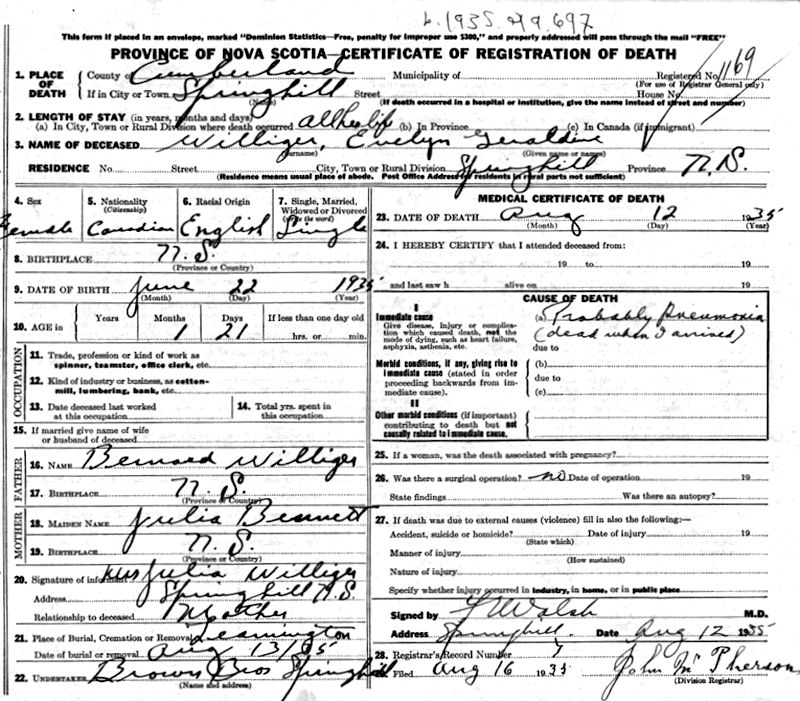 b. 1935.
This form if placed in an envelope, marked "Dominion Statistics—Free, penalty for improper use $300," and properly addressed will pass through the mail "FREE"
PROVINCE OF NOVA SCOTIA—CERTIFICATE OF REGISTRATION OF DEATH
1. PLACE OF DEATH County of Cumberland Municipality of Registered No. 1169
(For use of Registrar General only)
If in City or Town Springhill Street House No.
(Name) (If death occurred in a hospital or institution, give the name instead of street and number)
2. LENGTH OF STAY (in years, months and days)
(a) In City, Town or Rural Division where death occurred all her life (b) In Province (c) In Canada (if immigrant)
3. NAME OF DECEASED Williger, Evelyn Geraldine
(Surname) (Given name or names)
RESIDENCE No. Street City, Town or Rural Division Springhill Province N.S.
(Residence means usual place of abode. Post Office Address for residents in rural parts not sufficient)
4. Sex 5. Nationality (Citizenship) 6. Racial Origin 7. Single, Married, Widowed or Divorced (write the word)
Female Canadian English Single
8. BIRTHPLACE N.S.
(Province or Country)
9. DATE OF BIRTH June 22 1935
(Month) (Day) (Year)
10. AGE in Years Months Days If less than one day old
1 21 hrs. or min.
OCCUPATION
11. Trade, profession or kind of work as spinner, teamster, office clerk, etc.
12. Kind of industry or business, as cotton-mill, lumbering, bank, etc.
13. Date deceased last worked at this occupation
14. Total yrs. spent in this occupation
15. If married give name of wife or husband of deceased
FATHER
16. NAME Bernard Williger
17. BIRTHPLACE N.S.
(Province or Country)
MOTHER
18. MAIDEN NAME Julia Bennett
19. BIRTHPLACE N.S.
(Province or Country)
20. Signature of informant Mrs Julia Williger
Address Springhill N.S.
Relationship to deceased Mother
21. Place of Burial, Cremation or Removal Leamington
Date of burial or removal Aug 13/35
22. UNDERTAKER Brown Bros Springhill
(Name and address)
MEDICAL CERTIFICATE OF DEATH
23. DATE OF DEATH Aug 12 1935
(Month) (Day) (Year)
24. I HEREBY CERTIFY that I attended deceased from:
19 to 19
and last saw h alive on 19
CAUSE OF DEATH
I
Immediate cause
Give disease, injury or complication which caused death, not the mode of dying, such as heart failure, asphyxia, asthenia, etc.
(a) Probably Pneumonia
(dead when I arrived)
due to
Morbid conditions, if any, giving rise to immediate cause (stated in order proceeding backwards from immediate cause).
(b)
due to
(c)
II
Other morbid conditions (if important) contributing to death but not causally related to immediate cause.
25. If a woman, was the death associated with pregnancy?
26. Was there a surgical operation? no Date of operation 19
State findings Was there an autopsy?
27. If death was due to external causes (violence) fill in also the following:—
Accident, suicide or homicide? Date of injury 19
(State which)
Manner of injury
(How sustained)
Nature of injury
Specify whether injury occurred in industry, in home, or in public place
Signed by Walsh M.D.
Address Springhill. Date Aug 12 1935
28. Registrar's Record Number 7
Filed Aug 16 1935 John McPherson
(Division Registrar)